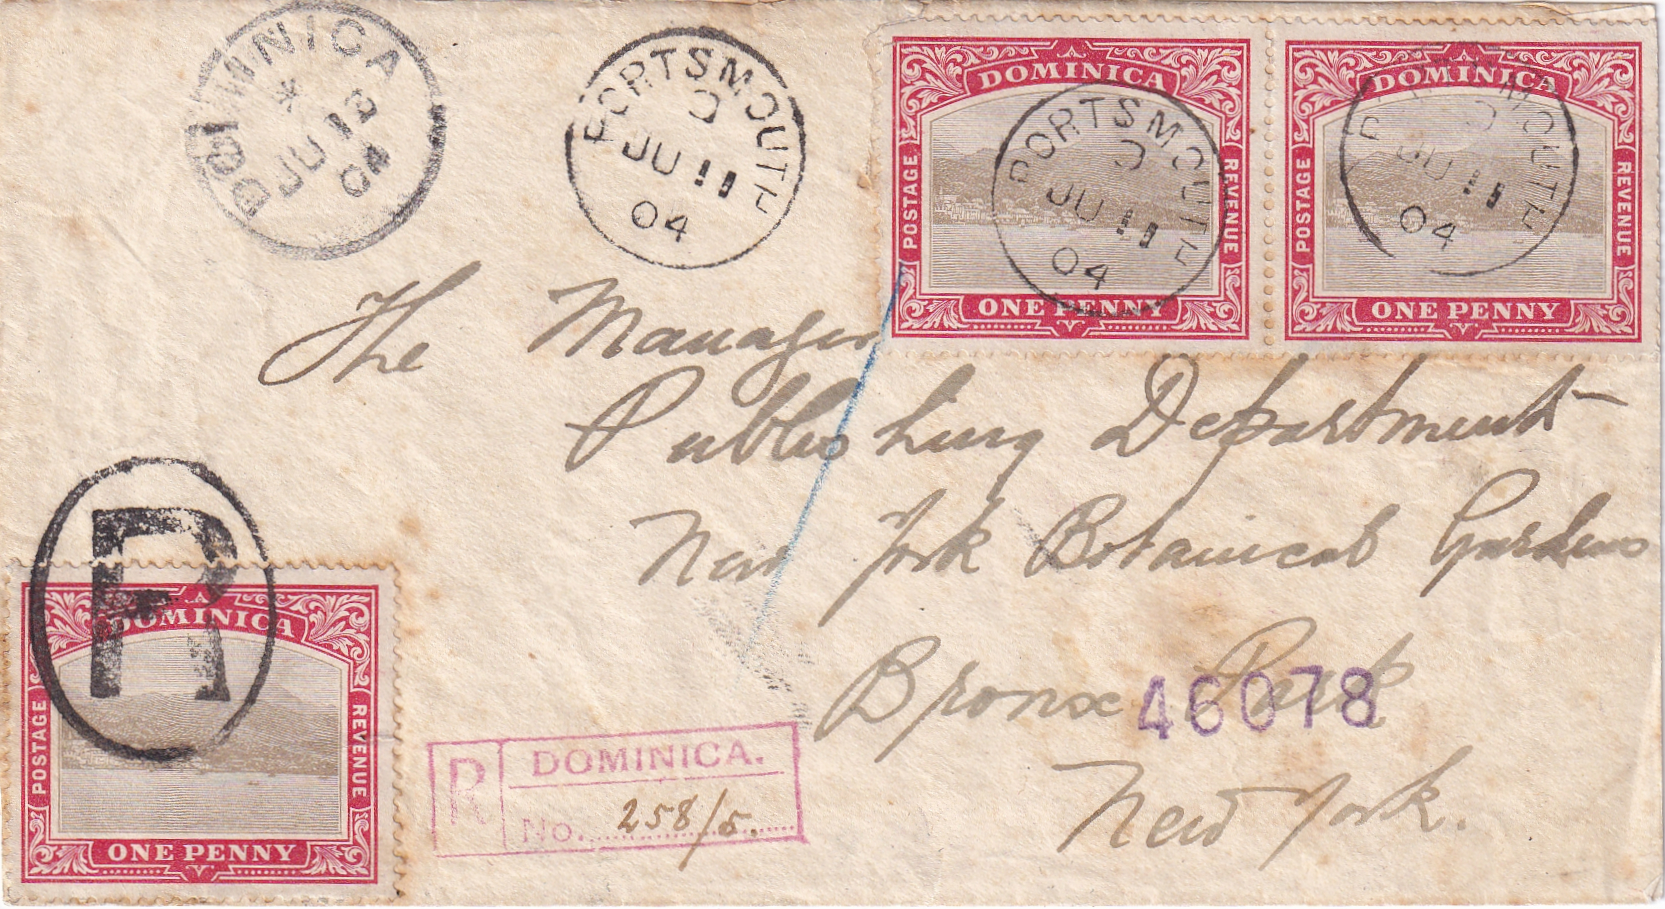 DOMINICA
*
JU 12
04
PORTSMOUTH
JU 11
04
DOMINICA
POSTAGE
REVENUE
ONE PENNY
PORTSMOUTH
JU 11
04
DOMINICA
POSTAGE
REVENUE
ONE PENNY
PORTSMOUTH
JU 11
04
The Manager
Publishing Department
New York Botanical Gardens
Bronx Park
46078
New York.
R
DOMINICA
POSTAGE
REVENUE
ONE PENNY
R
DOMINICA.
No. 258/5.